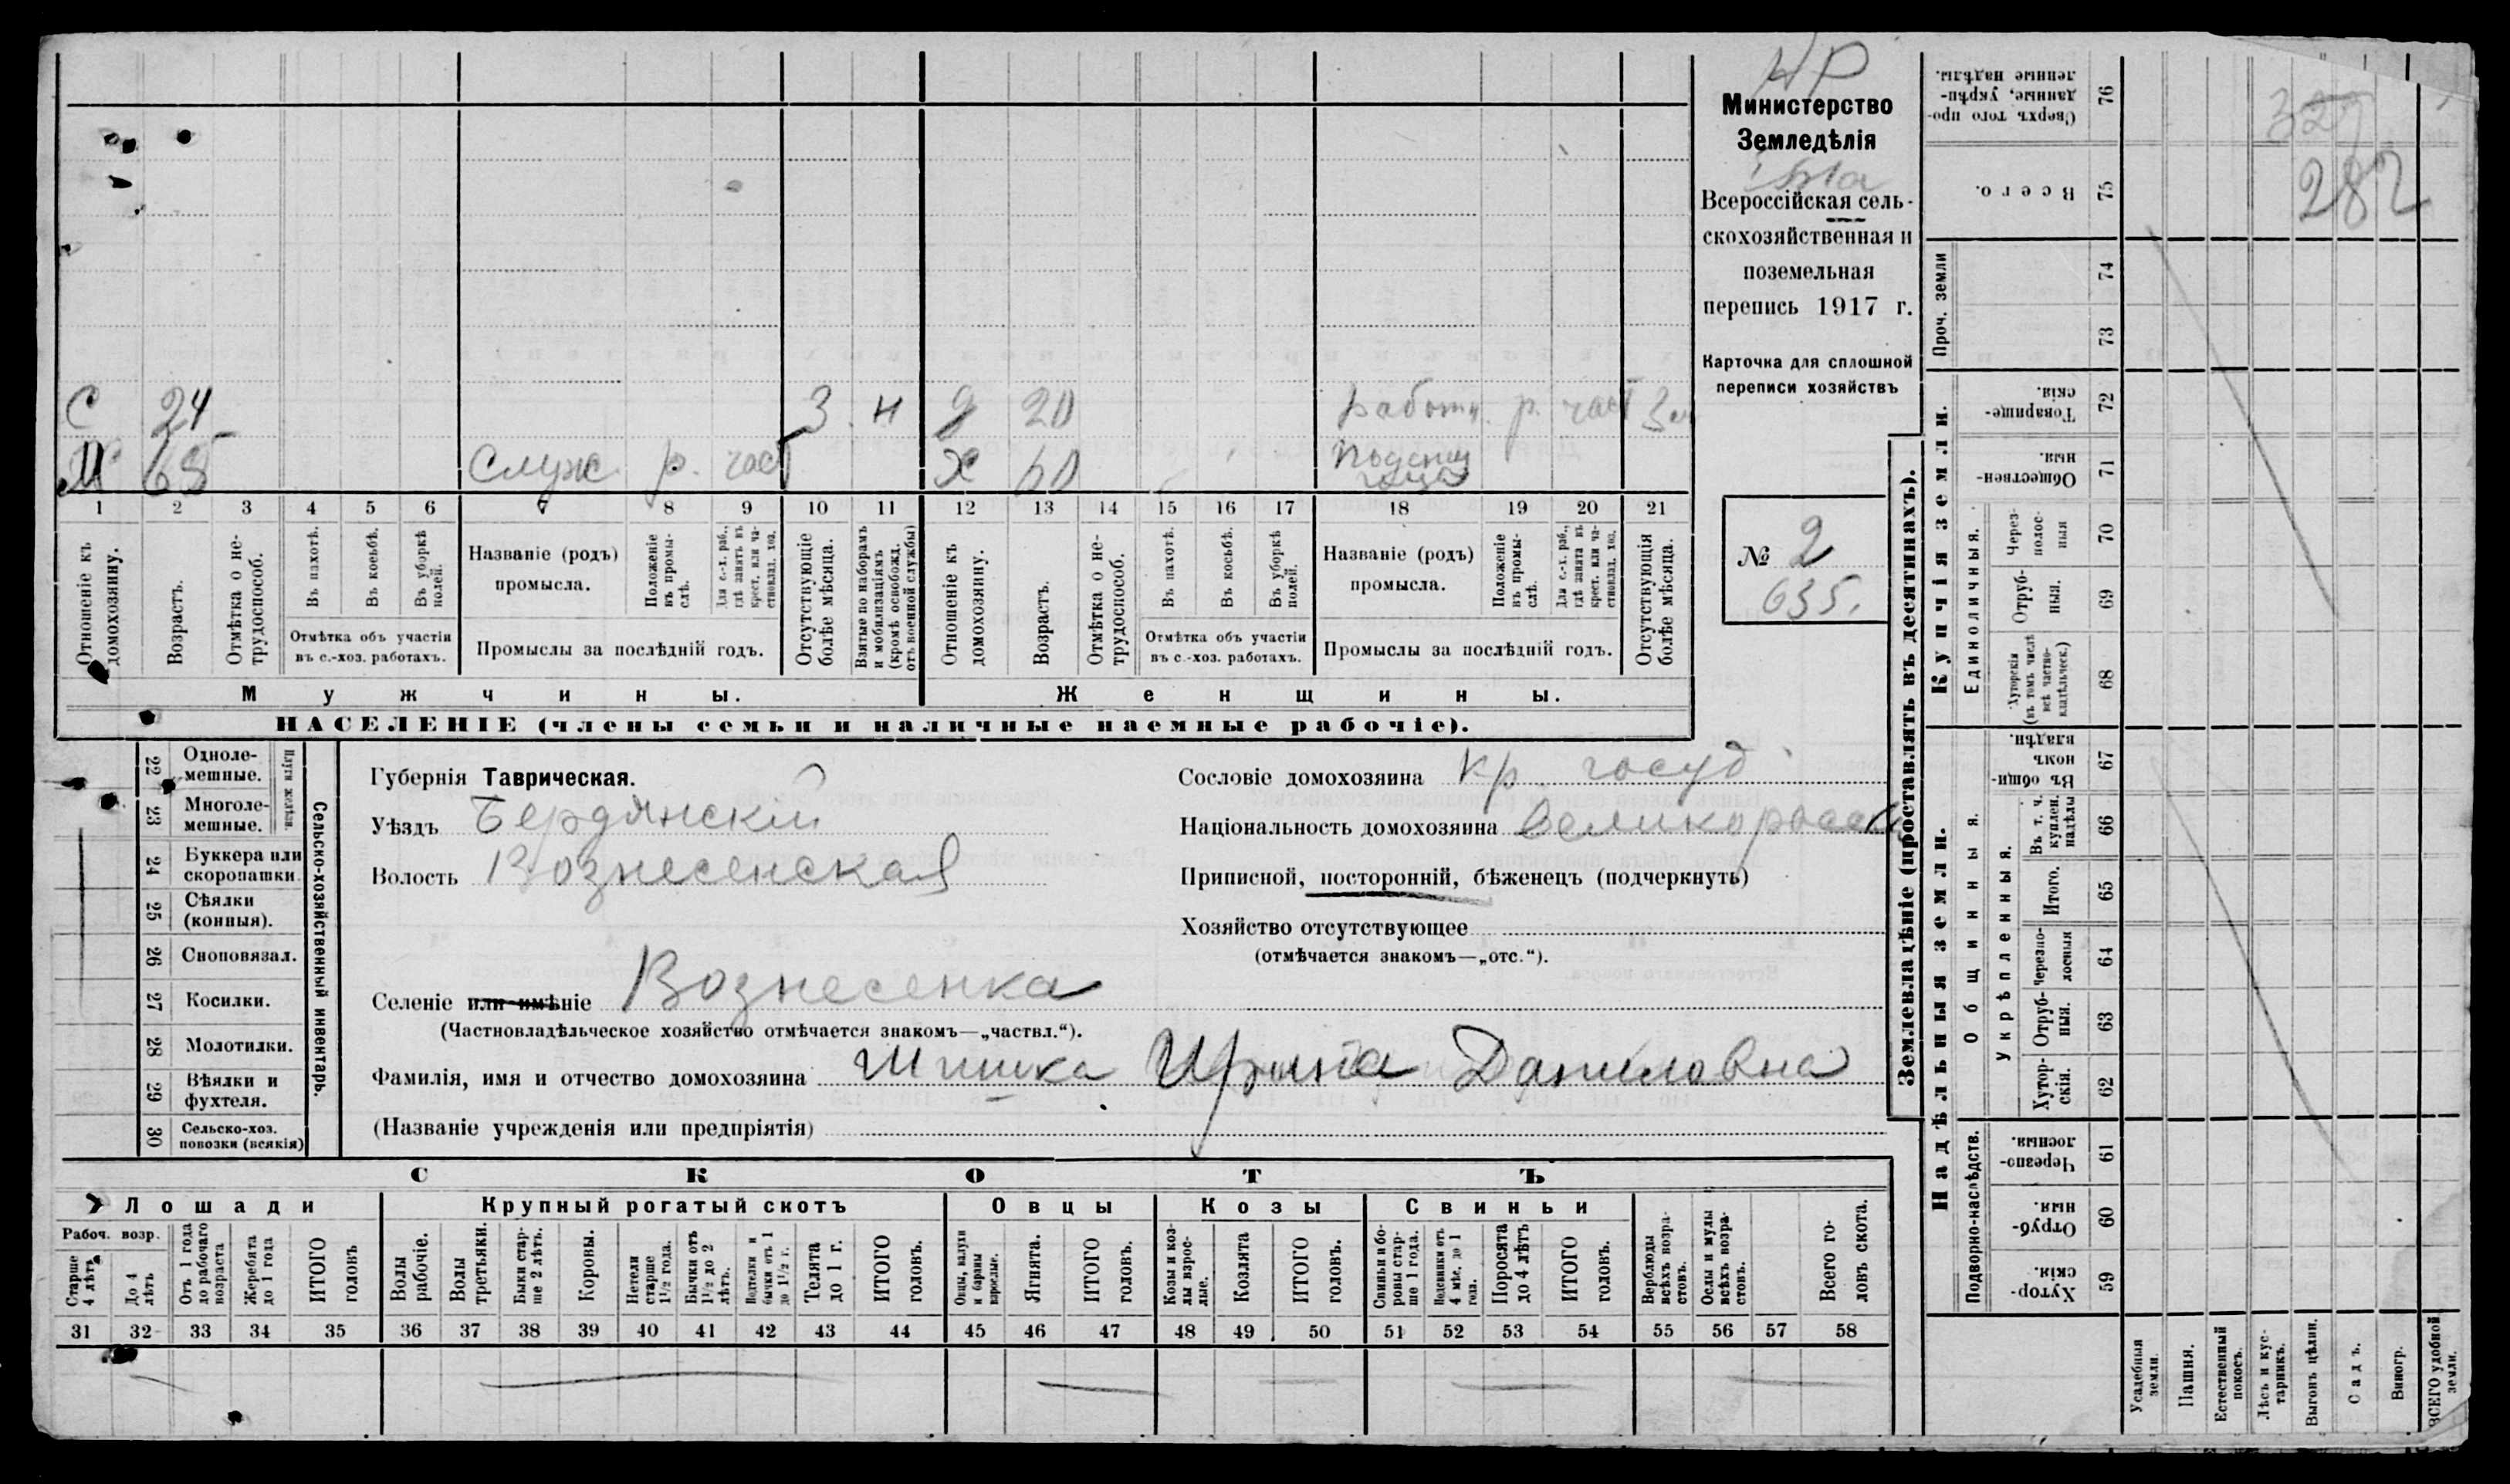 НР
Министерство
Земледѣлія
Всероссійская сель-
скохозяйственная и
поземельная
перепись 1917 г.
Карточка для сплошной
переписи хозяйствъ
№ 2
635.
С 24 3 н д 20 работн. р. част 3
М 65 Служ р. част Х 60 Поденщ
1 2 3 4 5 6 7 8 9 10 11 12 13 14 15 16 17 18 19 20 21
Отношеніе къ домохозяину.
Возрастъ.
Отмѣтка о не-трудоспособ.
Въ пахотѣ.
Въ косьбѣ.
Въ уборкѣ полей.
Отмѣтка объ участіи
въ с.-хоз. работахъ.
Названіе (родъ)
промысла.
Положеніе въ промы-слѣ.
Для с.-х. раб., гдѣ занятъ въ крест. или ча-стновлад. хоз.
Промыслы за послѣдній годъ.
Отсутствующіе болѣе мѣсяца.
Взятые по наборамъ и мобилизаціямъ (кромѣ освобожд. отъ военной службы)
Отношеніе къ домохозяину.
Возрастъ.
Отмѣтка о не-трудоспособ.
Въ пахотѣ.
Въ косьбѣ.
Въ уборкѣ полей.
Отмѣтка объ участіи
въ с.-хоз. работахъ.
Названіе (родъ)
промысла.
Положеніе въ промы-слѣ.
Для с.-х. раб., гдѣ занята въ крест. или ча-стновлад. хоз.
Промыслы за послѣдній годъ.
Отсутствующія болѣе мѣсяца.
Мужчины. Женщины.
НАСЕЛЕНІЕ (члены семьи и наличные наемные рабочіе).
22 Одноле-мешные.
23 Многоле-мешные.
Плуги желѣзн.
24 Буккера или скоропашки.
25 Сѣялки (конныя).
26 Сноповязал.
27 Косилки.
28 Молотилки.
29 Вѣялки и фухтеля.
30 Сельско-хоз. повозки (всякія)
Сельско-хозяйственный инвентарь.
Губернія Таврическая.
Уѣздъ Бердянскій
Волость Вознесенская
Селеніе или имѣніе Вознесенка
(Частновладѣльческое хозяйство отмѣчается знакомъ—„частвл.“).
Фамилія, имя и отчество домохозяина Шишка Ирина Даниловна
(Названіе учрежденія или предпріятія)
Сословіе домохозяина кр госуд
Національность домохозяина великоросс
Приписной, посторонній, бѣженецъ (подчеркнуть)
Хозяйство отсутствующее
(отмѣчается знакомъ—„отс.“).
СКОТЪ
Лошади Крупный рогатый скотъ Овцы Козы Свиньи
Рабоч. возр.
Старше 4 лѣтъ
До 4 лѣтъ
Отъ 1 года до рабочаго возраста
Жеребята до 1 года
ИТОГО головъ
Волы рабочіе.
Волы третьяки.
Быки стар-ше 2 лѣтъ.
Коровы.
Нетели старше 1½ года.
Бычки отъ 1½ до 2 лѣтъ.
Подтелки и бычки отъ 1 до 1½ г.
Телята до 1 г.
ИТОГО головъ.
Овцы, валухи и бараны взрослые.
Ягнята.
ИТОГО головъ.
Козы и коз-лы взрос-лые.
Козлята
ИТОГО головъ.
Свиньи и бо-ровы стар-ше 1 года.
Подсвинки отъ 4 мѣс. до 1 года.
Поросята до 4 лѣтъ
ИТОГО головъ.
Верблюды всѣхъ возра-стовъ.
Ослы и мулы всѣхъ возра-стовъ.
Всего го-ловъ скота.
31 32 33 34 35 36 37 38 39 40 41 42 43 44 45 46 47 48 49 50 51 52 53 54 55 56 57 58
Землевладѣніе (проставлять въ десятинахъ).
Надѣльныя земли. Купчія земли. Проч. земли
Подворно-наслѣдств.
Общинныя.
Укрѣпленныя.
Единоличныя.
Хутор-скія. 59
Отруб-ныя. 60
Черезпо-лосныя. 61
Хутор-скія. 62
Отруб-ныя. 63
Черезпо-лосныя 64
Итого. 65
Въ т. ч. куплен. надѣлы 66
Въ общин-номъ владѣн. 67
Хуторскія (въ томъ числѣ всѣ частно-владѣльческ.) 68
Отруб-ныя. 69
Через-полос-ныя 70
Обществен-ныя. 71
Товарище-скія. 72
73
74
Всего. 75
Сверхъ того про-данные, укрѣп-ленные надѣлы. 76
329
282
Усадебныя земли.
Пашня.
Естественный покосъ.
Лѣсъ и кус-тарникъ.
Выгонъ цѣлин.
Садъ.
Виногр.
ВСЕГО удобной земли.